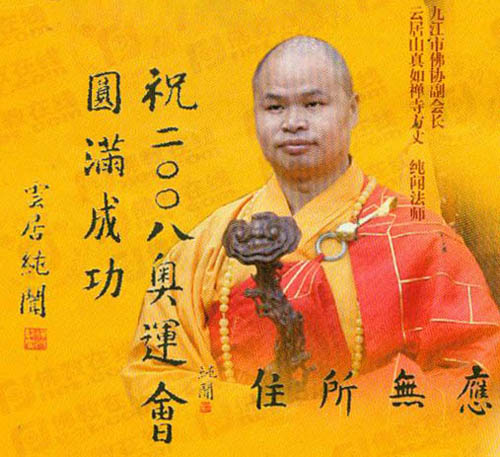 九江市佛协副会长
云居山真如禅寺方丈 纯闻法师
祝二〇〇八奥運會
圓滿成功
雲居純聞
應無所住
純聞